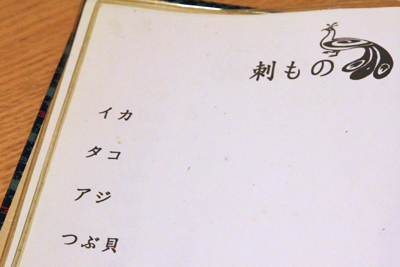 刺もの
イカ
タコ
アジ
つぶ貝